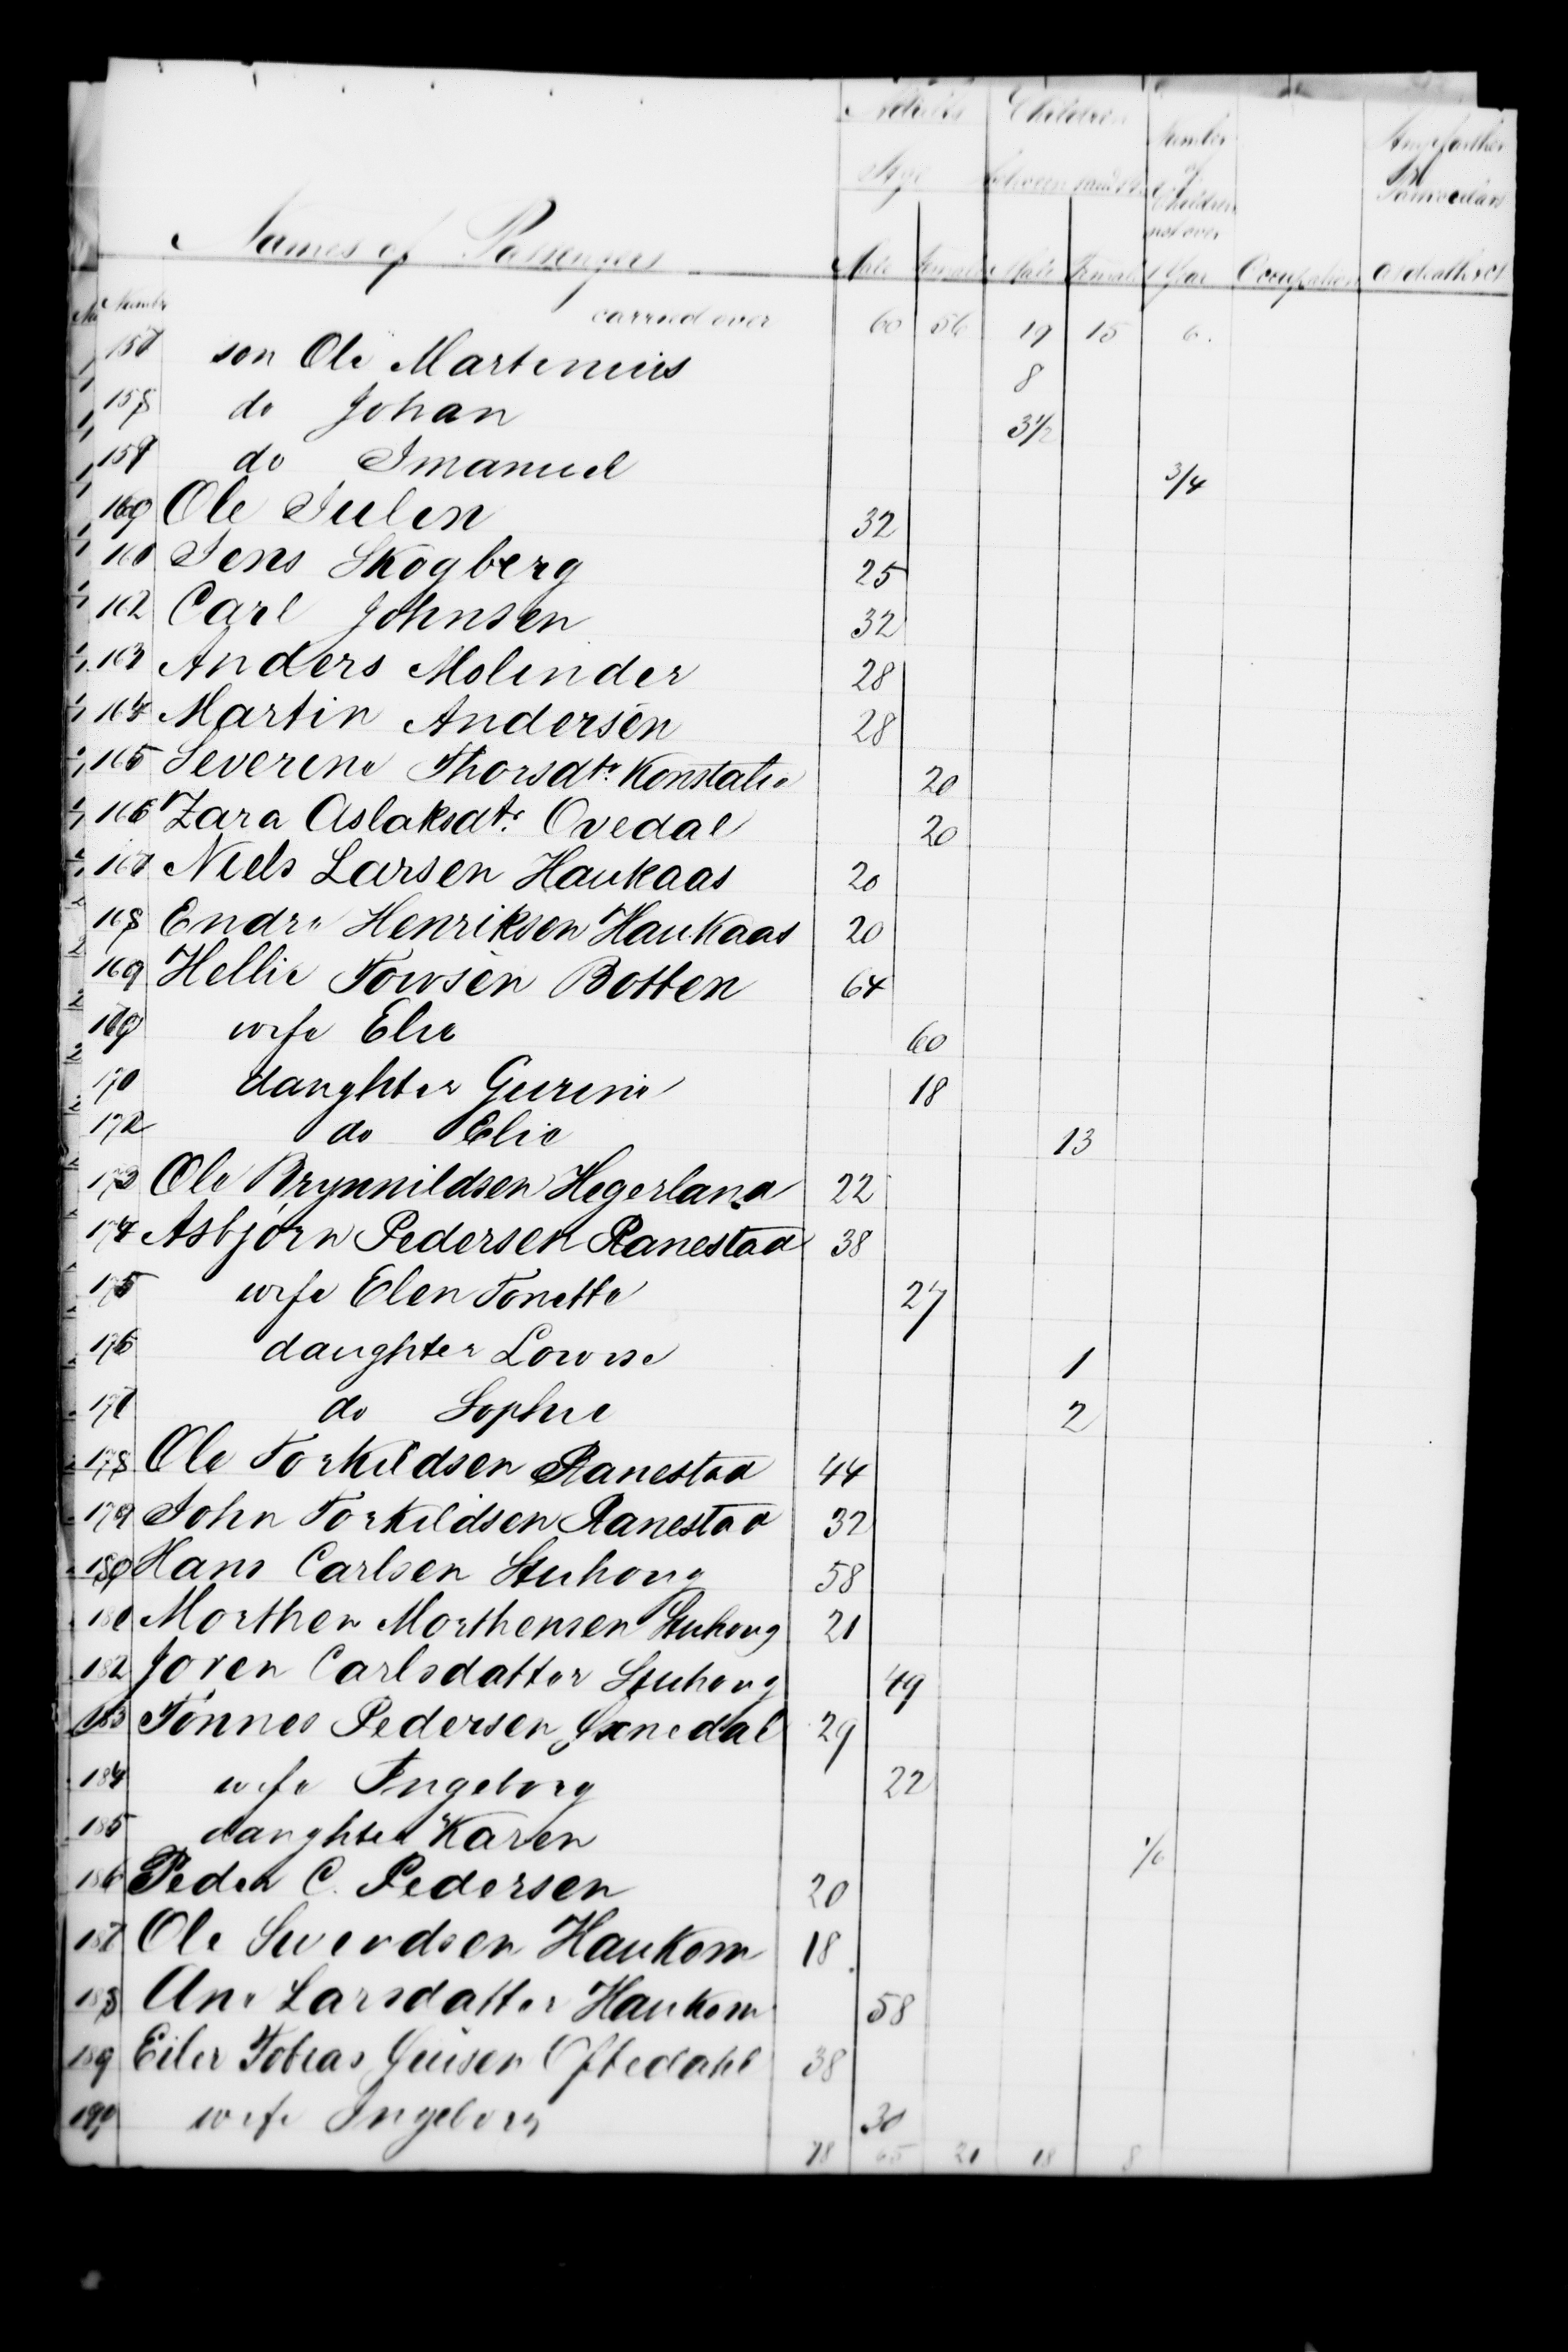 Adults Children Number of Children not over 1 Year Any farther Particulars as death &ct
Age between
Names of Passengers Male Female Male Female Occupation
No Number carried over 60 56 19 15 6.
157 son Ole Martinius 8
158 do Johan 3 1/2
159 do Imanuel 3/4
160 Ole Julen 32
161 Jens Skogberg 25
162 Carl Johnsen 32
163 Anders Molinder 28
164 Martin Andersen 28
165 Severine Thorsdtr. Konstalie 20
166 Zara Aslaksdtr. Ovedal 20
167 Niels Larsen Haukaas 20
168 Endre Henriksen Haukaas 20
169 Hellie Towsen Botten 64
170 wife Elie 60
171 daughter Gurine 18
172 do Elie 13
173 Ole Brynnildsen Hegerland 22
174 Asbjörn Pedersen Ranestad 38
175 wife Elen Tonette 27
176 daughter Lowise 1
177 do Sophie 2
178 Ole Torkildsen Ranestad 44
179 John Torkildsen Ranestad 32
180 Hans Carlsen Stuhoug 58
181 Morthen Morthensen Stuhoug 21
182 Joren Carlsdatter Stuhoug 49
183 Tönnes Pedersen 29
184 wife Ingeborg 22
185 daughter Karen 1/6
186 Peder C. Pedersen 20
187 Ole Swendsen Haukom 18
188 Ane Larsdatter Haukom 58
189 Eiler Tobias Oftedahl 38
190 wife Ingeborg 30
78 65 21 18 8